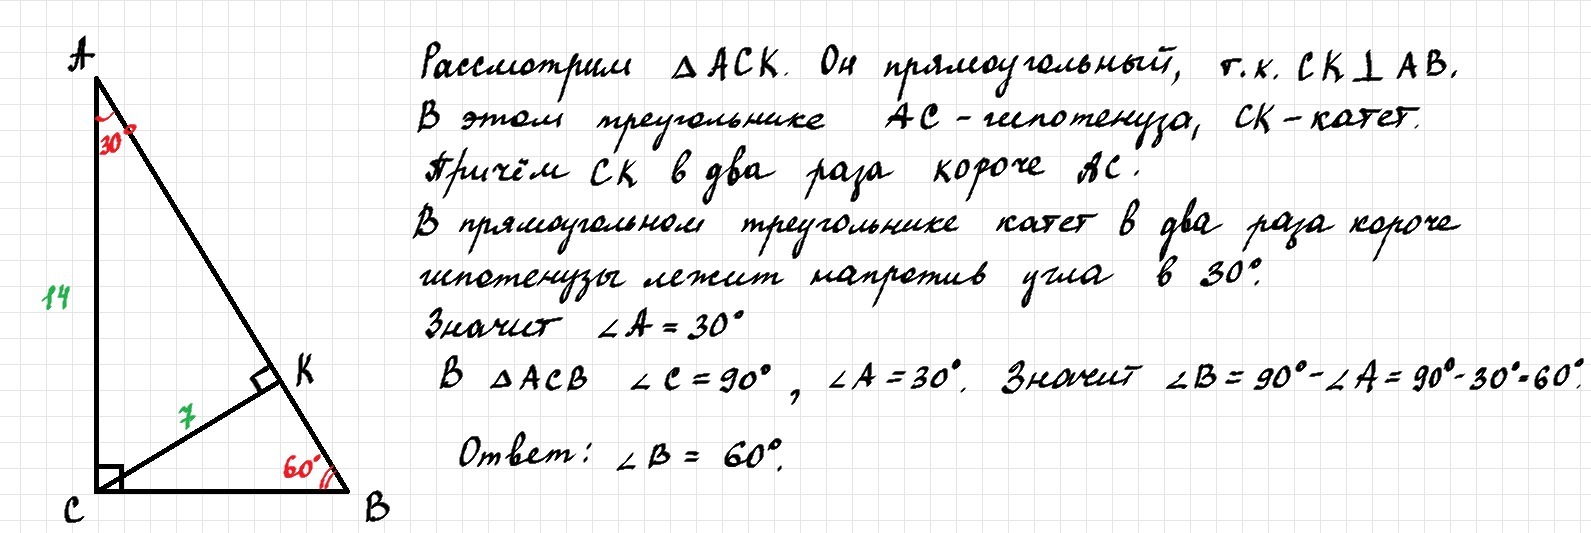 A
30°
14
K
7
60°
C
B
Рассмотрим △ACK. Он прямоугольный, т.к. CK⊥AB.
В этом треугольнике AC - гипотенуза, CK - катет.
Причём CK в два раза короче AC.
В прямоугольном треугольнике катет в два раза короче
гипотенузы лежит напротив угла в 30°.
Значит ∠A = 30°
В △ACB ∠C = 90°, ∠A = 30°. Значит ∠B = 90° - ∠A = 90° - 30° = 60°.
Ответ: ∠B = 60°.